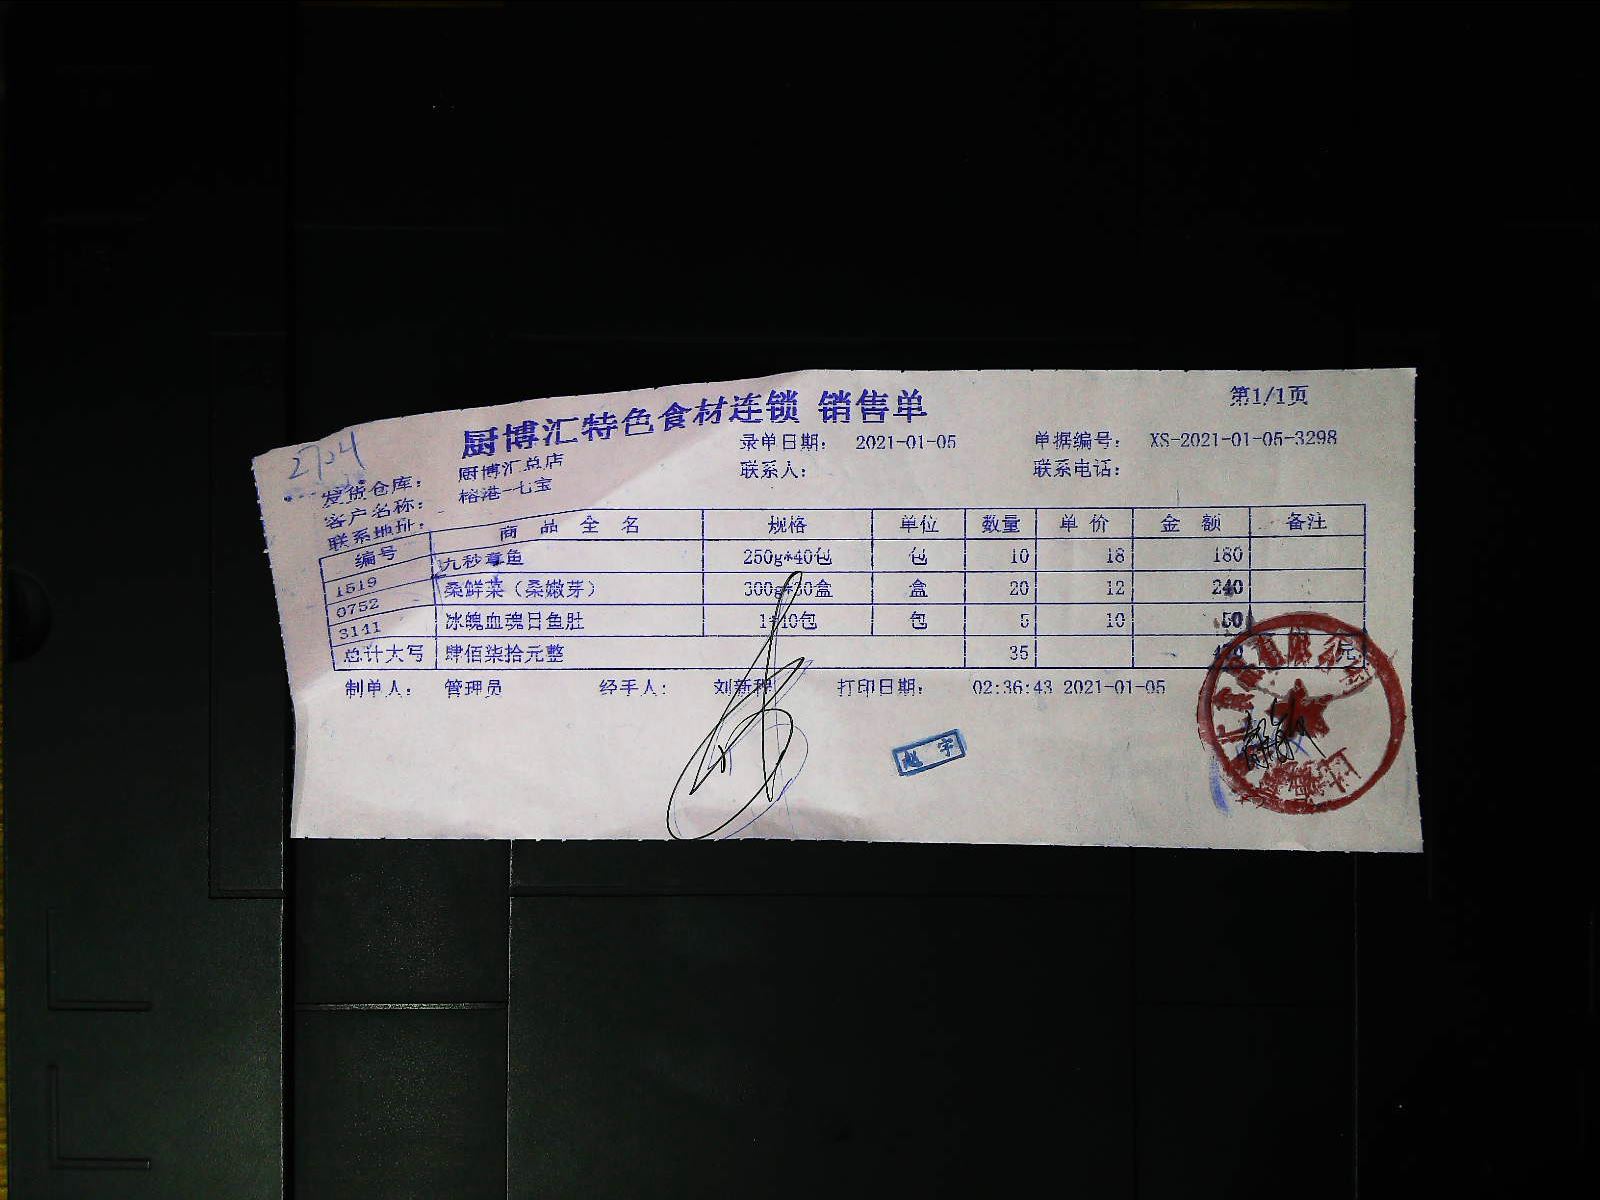 厨博汇特色食材连锁 销售单
第1/1页
2724
发货仓库: 厨博汇总店 录单日期: 2021-01-05 单据编号: XS-2021-01-05-3298
客户名称: 榕港-七宝 联系人: 联系电话:
联系地址:
编号 商品全名 规格 单位 数量 单价 金额 备注
1519 九秒章鱼 250g*40包 包 10 18 180
0752 桑鲜菜(桑嫩芽) 300g*30盒 盒 20 12 240
3141 冰魄血魂目鱼肚 1*10包 包 5 10 50
总计大写 肆佰柒拾元整 35 470元
制单人: 管理员 经手人: 刘新程 打印日期: 02:36:43 2021-01-05
赵宇